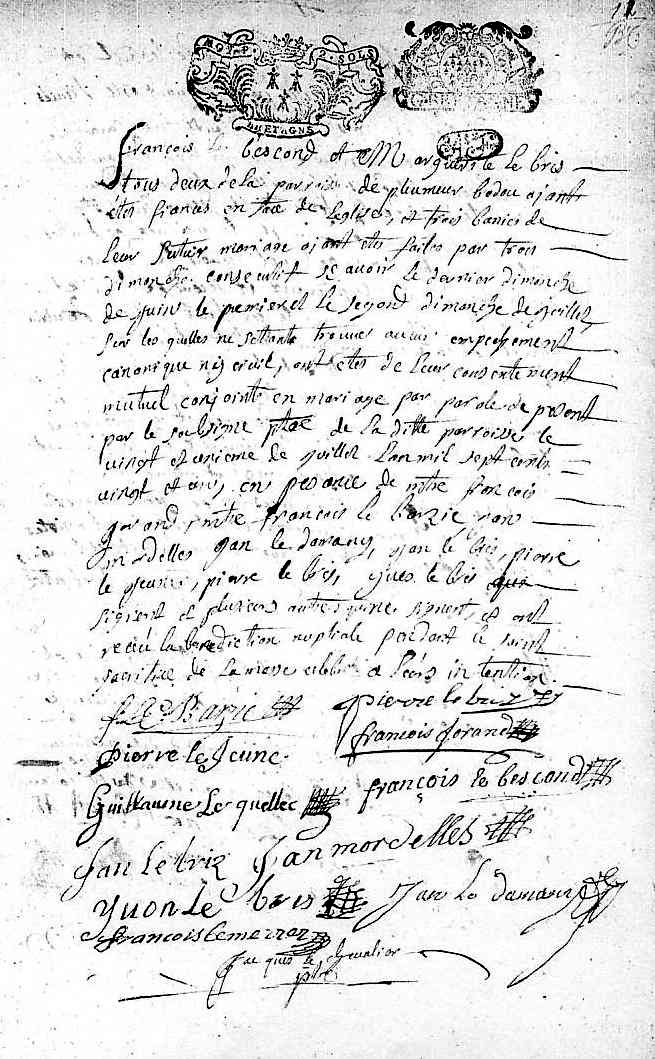 MOY. P. 2. SOLS
BRETAGNE
françois le bescond et Marguerite le bris
tous deux de la parroisse de pluumeur bodou ajant
etes fiancés en face de leglise, et trois banies de
leur futur mariage ajant etes faites par trois
dimanche consecutif scavoir le dernier dimanche
de juin le premier et le second dimanche de juillet
sur les quelles ne settante trouver aucun empechement
canonique nij civil, ont etes de leur consentement
mutuel conjoints en mariage par parole de pesent
par le soubsigne ptre de la ditte parroisse le
vingt et unieme de juillet lan mil sept cents
vingt et un, en pesance de mtre francois
jorand, mtre françois le barzic, jan
mordelles jan le damany, jan le bris, pierre
le jeune, pierre le bris, yves le bris qui
signent et plusieurs autres qui ne signent, et ont
receu la benediction nuptiale pendant le saint
sacrifice de la messe celebré a leurs intention.
f. le Barzic pierre le briz
pierre le Jeune. francois Jorand
Guillaume Le quellec françois le bescond
jan le briz Jan mordelles
yuon Le bris Jan le damany
francois lemerrer
Jacques le chevalier
ptre